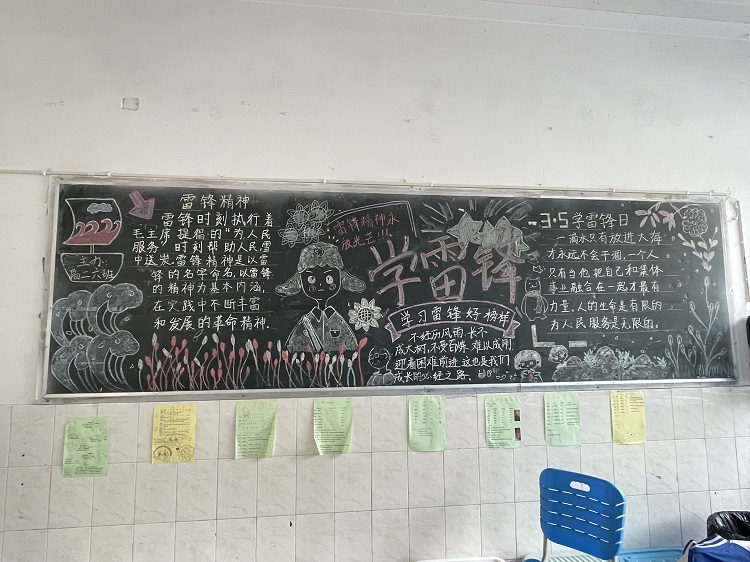 雷锋精神
雷锋时刻执行着
毛主席提倡的“为人民
服务”时刻帮助人民雪
中送炭雷锋精神是以雷
锋的名字命名,以雷锋
的精神为基本内涵,
在实践中不断丰富
和发展的革命精神.
主办:
高二六班
雷锋精神永
放光芒!!!
学雷锋
学习雷锋好榜样
不经历风雨,长不
成大树,不受百炼,难以成钢,
迎着困难前进,这也是我们
成长的必经之路.
3·5学雷锋日
一滴水只有放进大海
才永远不会干涸,一个人
只有当他把自己和集体
事业融合在一起才最有
力量,人的生命是有限的
为人民服务是无限的。